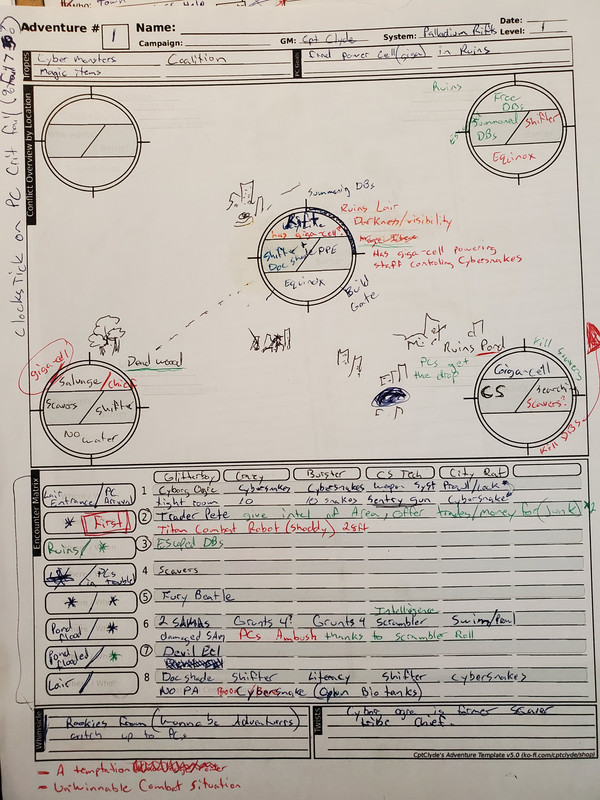 Adventure # 1 Name:
Date:
Campaign: GM: Cpt Clyde System: Palladium Rifts Level: 1
Tropes
Cyber monsters Coalition
Magic items
Find power cell (giga) in Ruins
Clocks Tick on PC Crit fail
Conflict Overview by Location
Ruins
Free DBs
Summoned DBs
Shifter
Equinox
Summoning DBs
Rift
Has giga-cell?
Shifter +
Doc shade
PPE
Equinox
Ruins Lair
Darkness/visibility
Has giga-cell powering
staff controling Cybersnakes
Build
Gate
Dead wood
giga-cell
Salvage/chief
Scavers
Shifter
NO
water
Ruins Pond
PCs get
the drop
Kill Scavers
Giga-cell
CS
Search
Scavers?
Kill DBs
Encounter Matrix
Glitterboy Crazy Burster CS Tech City Rat
Lair Entrance / PC Arrival 1 Cyborg Ogre Cybersnakes Cybersnakes weapon syst Prowl/Lock*
tight room 10 10 snakes Sentry gun Cybersnake*
* First 2 Trader Pete give intel of Area, offer trades/money for (junk)
Titan Combat Robot (shoddy) 28ft
Ruins / * 3 Escaped DBs
PCs in trouble 4 Scavers
* / * 5 Fury Beatle
Intelligence
Pond flood / * 6 2 SAMAS Grunts 4? Grunts 4 Scrambler Swim/Prowl
damaged SAM PCs Ambush thanks to Scrambler Roll
Pond flooded / * 7 Devil Eel
Lair / 8 Doc shade Shifter Literacy Shifter cybersnakes
NO PA Cybersnake (Open Bio tanks)
Whimsicle
Rookies From (wanna be Adventurers)
catch up to PCs
Twists
Cyborg ogre is former scaver
tribe chief.
CptClyde's Adventure Template v5.0 (ko-fi.com/cptclyde/shop)
- A temptation
- Unwinnable Combat situation